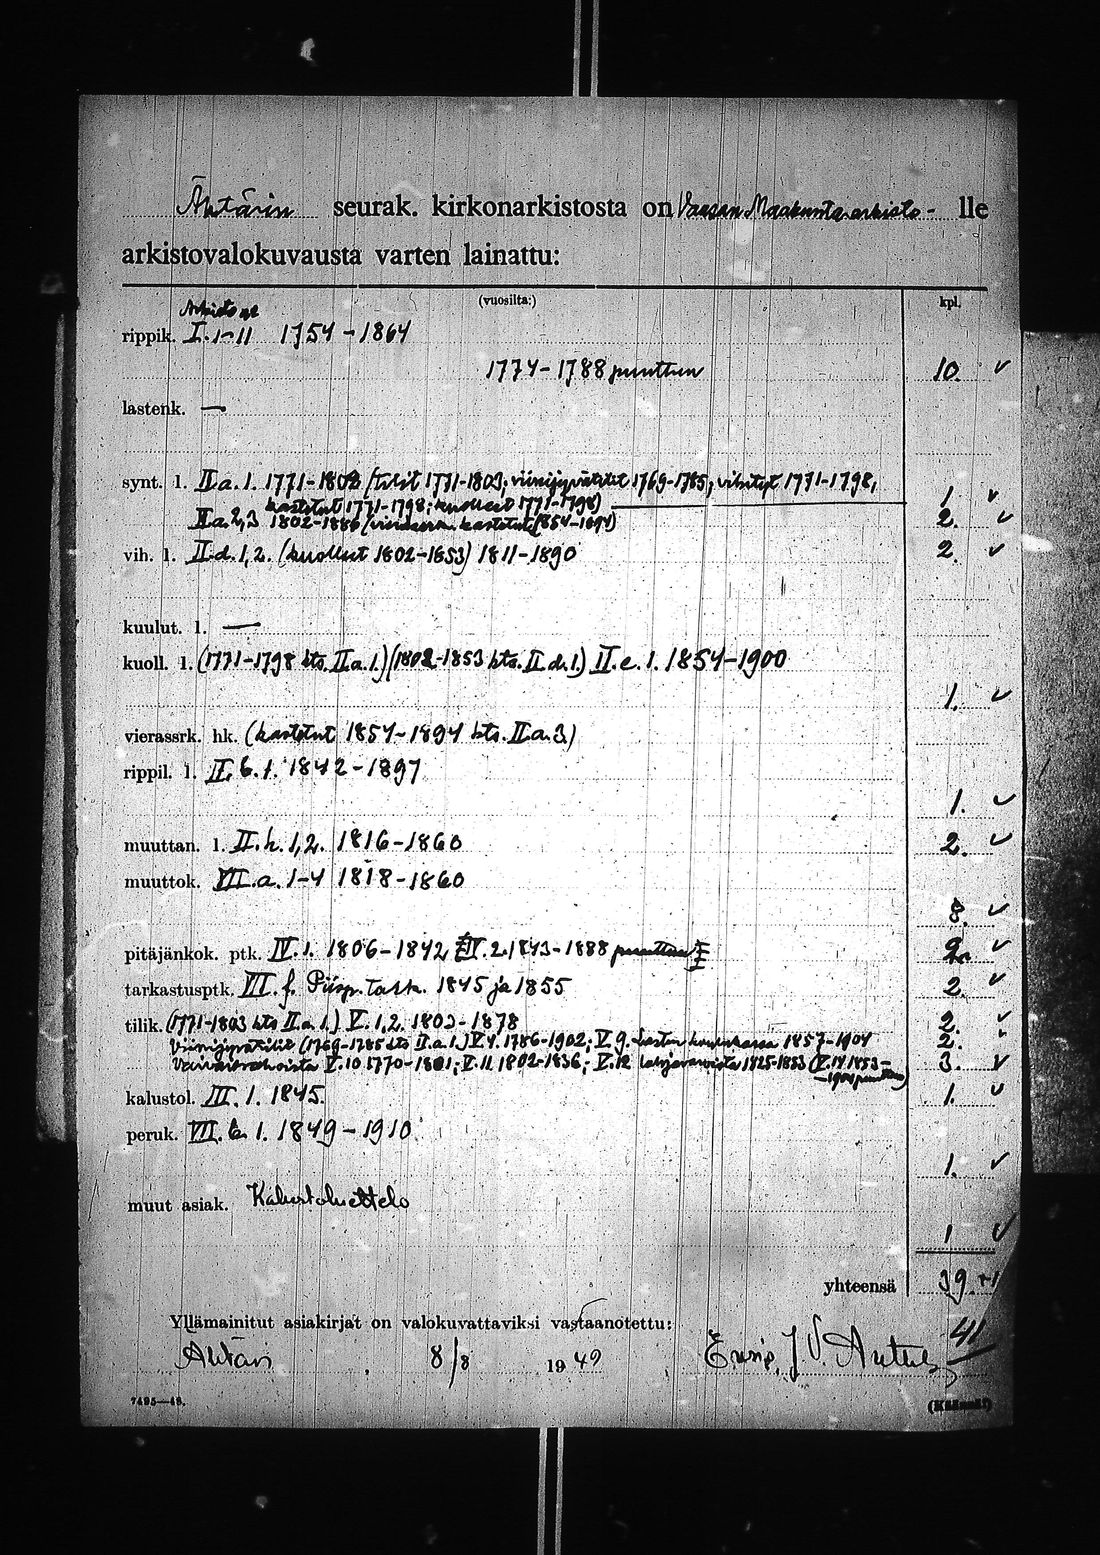 Ähtärin seurak. kirkonarkistosta on Vaasan Maakunta-arkisto- lle
arkistovalokuvausta varten lainattu:
(vuosilta:) kpl.
Arkisto nr
rippik. I. 1-11 1754-1864
1774-1788 puuttuu 10. ✓
lastenk. —
synt. l. II a. 1. 1771-1802 (tilit 1771-1803, viinijyvätilit 1769-1785, vihityt 1771-1798,
kastetut 1771-1798; kuolleet 1771-1798) 1. ✓
II a 2,3 1802-1886 (vierassrk. kastetut 1854-1894) 2. ✓
vih. l. II d. 1,2. (kuolleet 1802-1853) 1811-1890 2. ✓
kuulut. l. —
kuoll. l. (1771-1798 kts. II a. 1.) (1802-1853 kts. II d. 1.) II. e. 1. 1854-1900
1. ✓
vierassrk. hk. (kastetut 1854-1894 kts. II a. 3.)
rippil. l. II. b. 1. 1842-1897
1. ✓
muuttan. l. II. h. 1,2. 1816-1860 2. ✓
muuttok. VII. a. 1-4 1818-1860
8. ✓
pitäjänkok. ptk. IV. 1. 1806-1842 IV. 2. 1843-1888 puuttuu 2. ✓
tarkastusptk. VI. f. Piisp. tark. 1845 ja 1855 2. ✓
tilik. (1771-1803 kts II a. 1.) V. 1,2. 1803-1878 2. ✓
Viinijyvätilit (1769-1785 kts II. a. 1.) V. 4. 1786-1902; V. 9. Lasten koulukassa 1857-1904 2. ✓
Vaivaisrahoista V. 10 1770-1801; V. 11 1802-1836; V. 12 1825-1853 (V. 14 1853-
-1904 puuttuu) 3. ✓
kalustol. III. 1. 1845. 1. ✓
peruk. VII. b. 1. 1849-1910
1. ✓
muut asiak. Kalustoluettelo
1 ✓
yhteensä 39
41
Yllämainitut asiakirjat on valokuvattaviksi vastaanotettu:
Ähtäri , 8/8 1949
7495—48. (Käännä!)